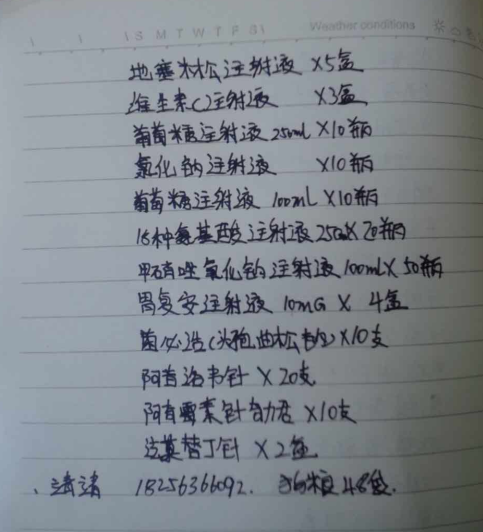 S M T W T F S Weather conditions
地塞米松注射液 ×5盒
维生素C注射液 ×3盒
葡萄糖注射液 250mL ×10瓶
氯化钠注射液 ×10瓶
葡萄糖注射液 100mL ×10瓶
18种氨基酸注射液 250 × 20瓶
甲硝唑氯化钠注射液 100mL × 50瓶
胃复安注射液 10mG × 4盒
菌必治(头孢曲松钠) ×10支
阿昔洛韦针 ×20支
阿奇霉素针 ×10支
法莫替丁针 ×2盒
18256366092. 狗粮 48袋.